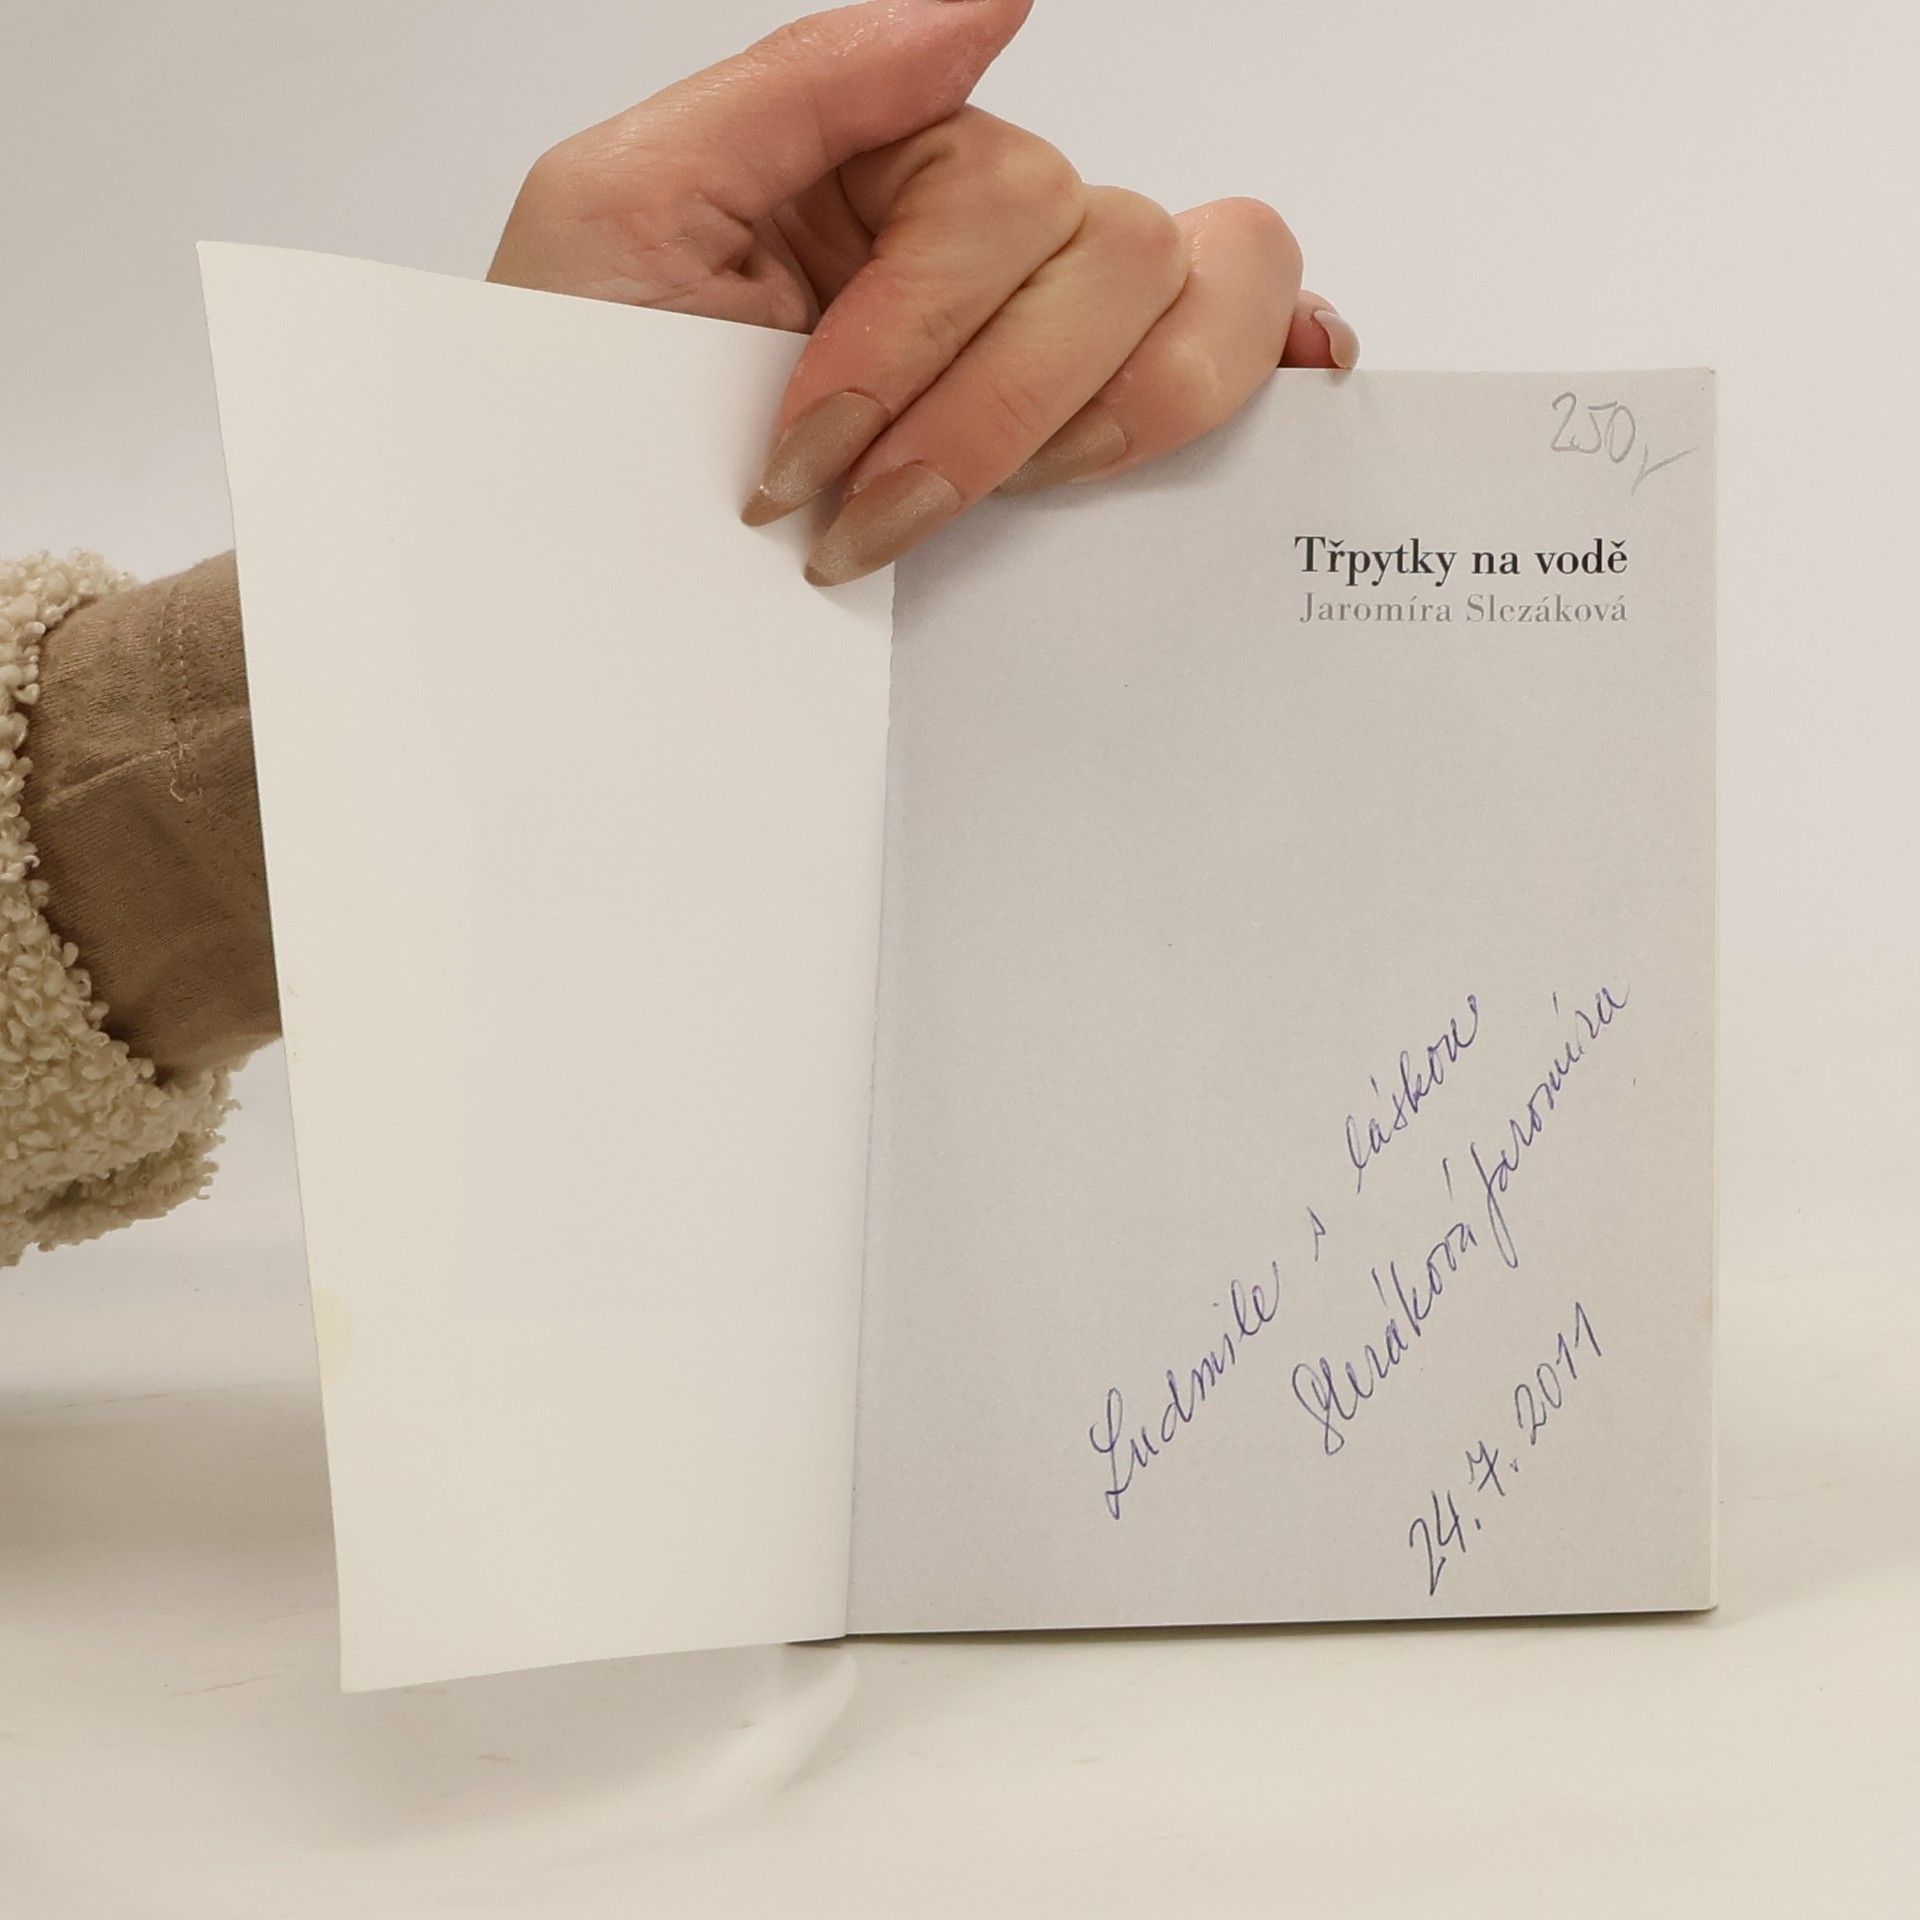 250,-
Třpytky na vodě
Jaromíra Slezáková
Ludmile s láskou
Slezáková Jaromíra
24.7.2011